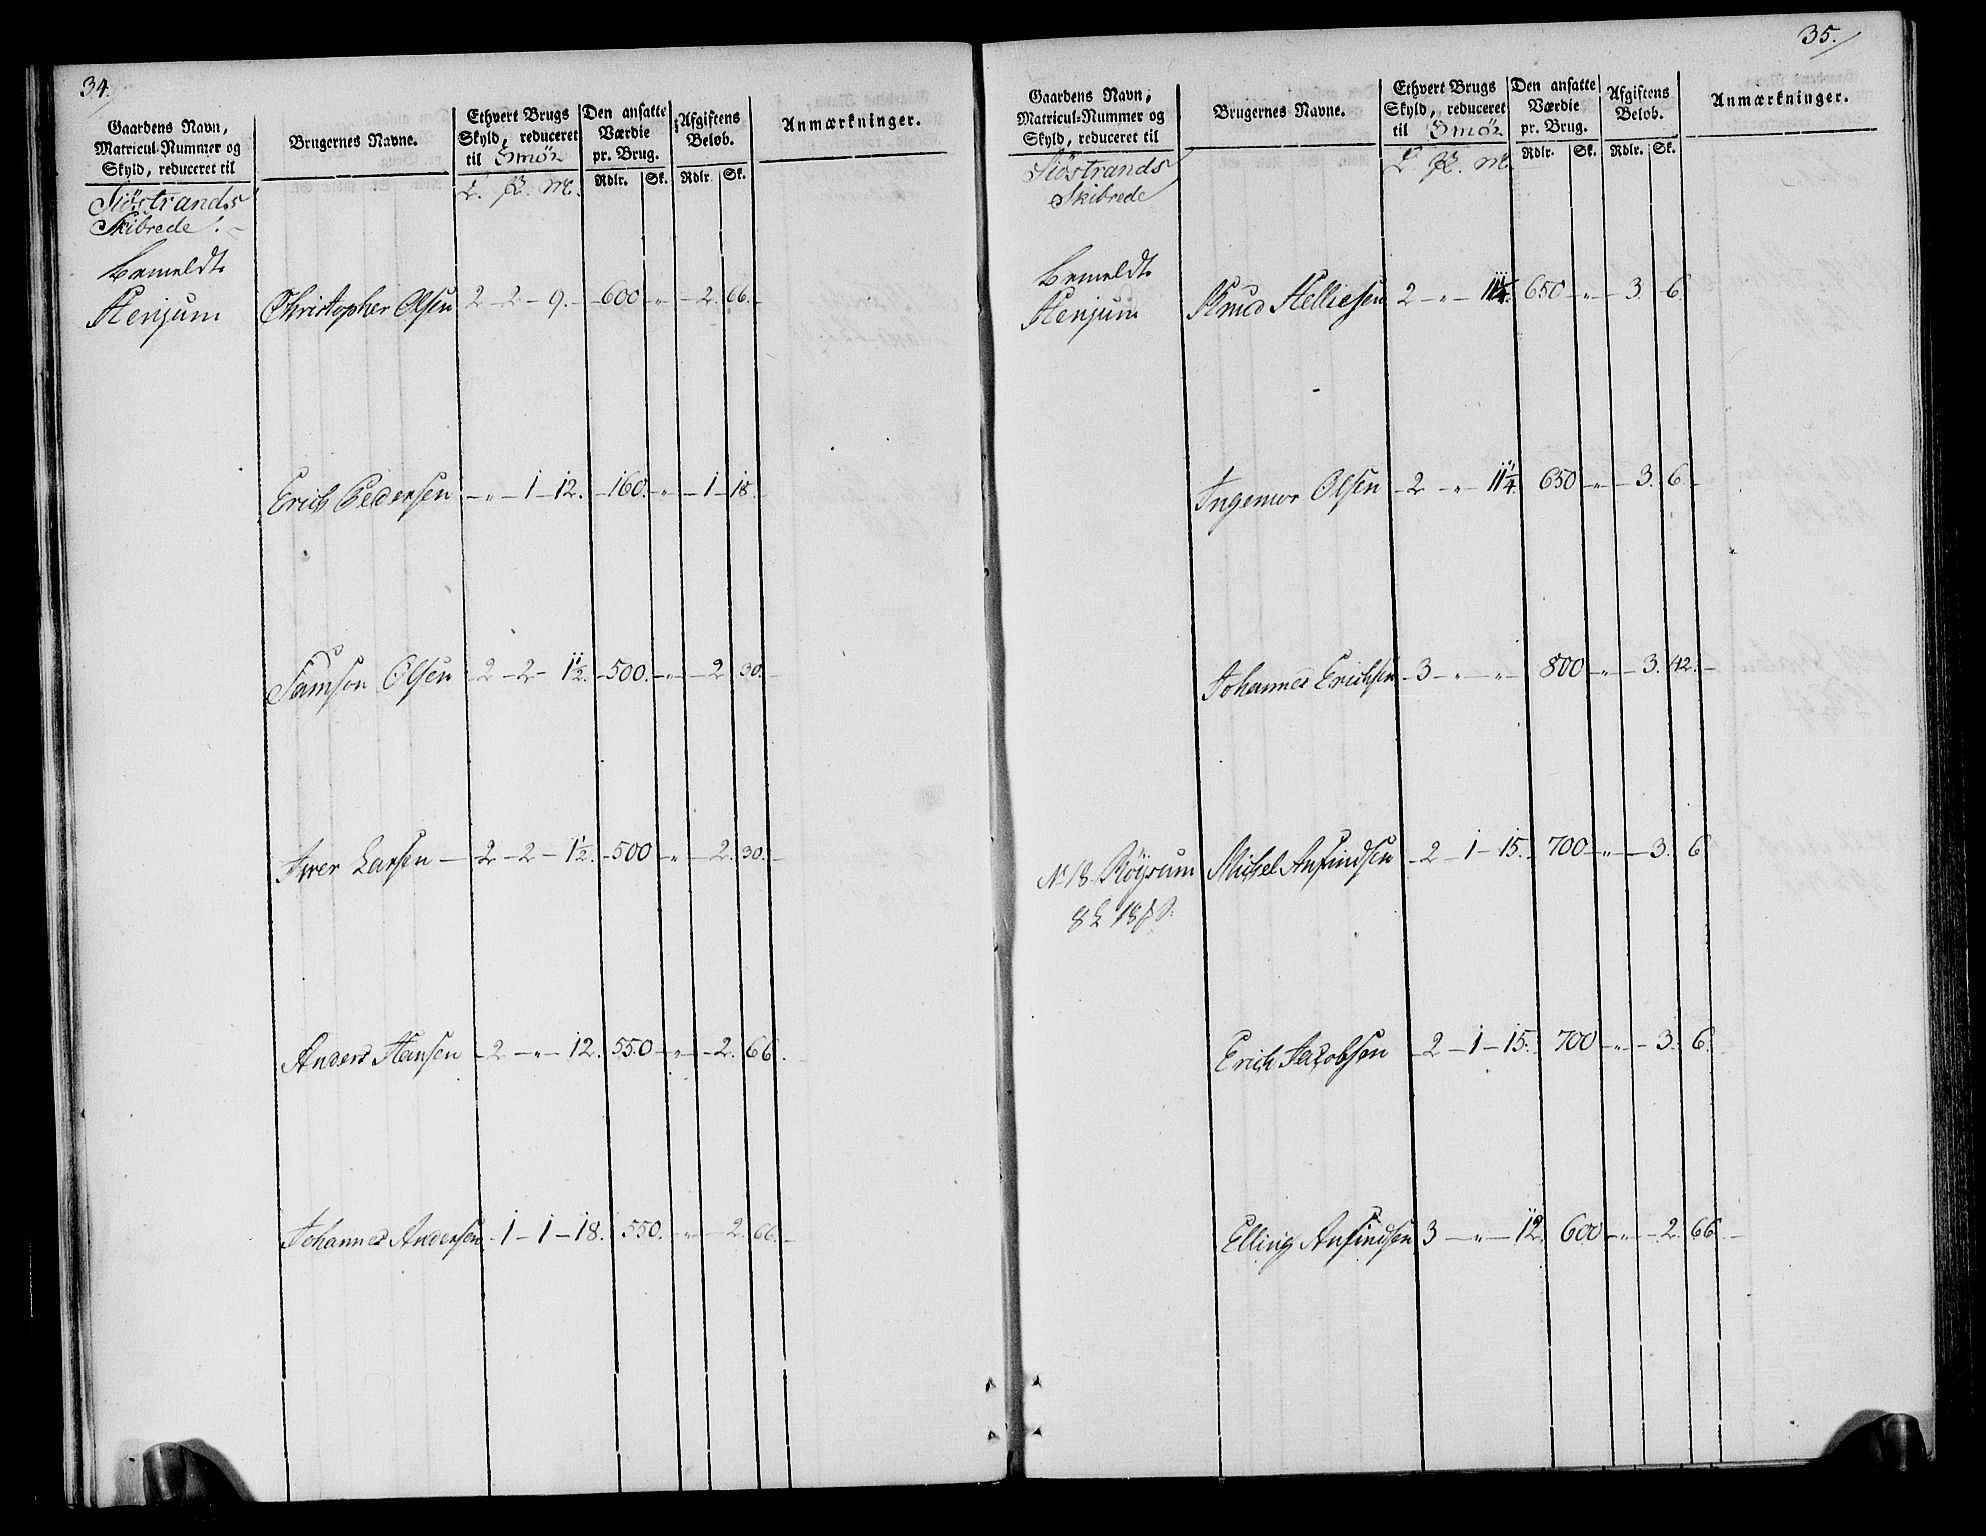 34.
Gaardens Navn,
Matricul-Nummer og
Skyld, reduceret til
Brugernes Navne.
Ethvert Brugs
Skyld, reduceret
til Smör
Den ansatte
Værdie
pr. Brug.
Afgiftens
Belöb.
Anmærkninger.
Rdlr. Sk. Rdlr. Sk.
Siöstrands
Skibrede
Bemeldte
Henjum
Christopher Olsen 2 - 2 - 9. - 600 - " - 2. 66.
Erich Pedersen - " - 1 - 12. - 160. - " - 1 - 18.
Samson Olsen - 2 - 2 - 1½. - 500. - " - 2. 30.
Iver Larsen - 2 - 2 - 1½. - 500 - " - 2. 30.
Anders Hansen - 2 - " - 12. 550 - " - 2. 66.
Johannes Andersen - 1 - 1 - 18. 550. - " - 2. 66.
35.
Gaardens Navn,
Matricul-Nummer og
Skyld, reduceret til
Brugernes Navne.
Ethvert Brugs
Skyld, reduceret
til Smör
Den ansatte
Værdie
pr. Brug.
Afgiftens
Belöb.
Anmærkninger.
Rdlr. Sk. Rdlr. Sk.
Siöstrands
Skibrede
Bemeldte
Henjum
Knud Helliesen 2 - " - 11¼. 650 - " - 3. 6.
Ingemor Olsen - 2 - " - 11¼. 650 - " - 3. 6.
Johannes Erichsen - 3 - " - " 800 - " - 3. 42.
No 18 Röysum Michel Anfindsen - 2 - 1 - 15. 700 - " - 3. 6
8 L 18
Erich Jacobsen - 2 - 1 - 15. 700 - " - 3. 6.
Elling Anfindsen 3 - " - 12. 600 - " - 2. 66